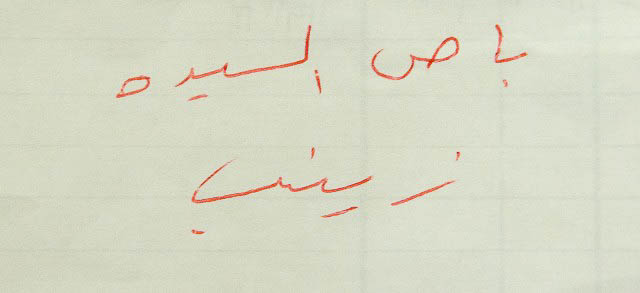 باص السيده
زينب